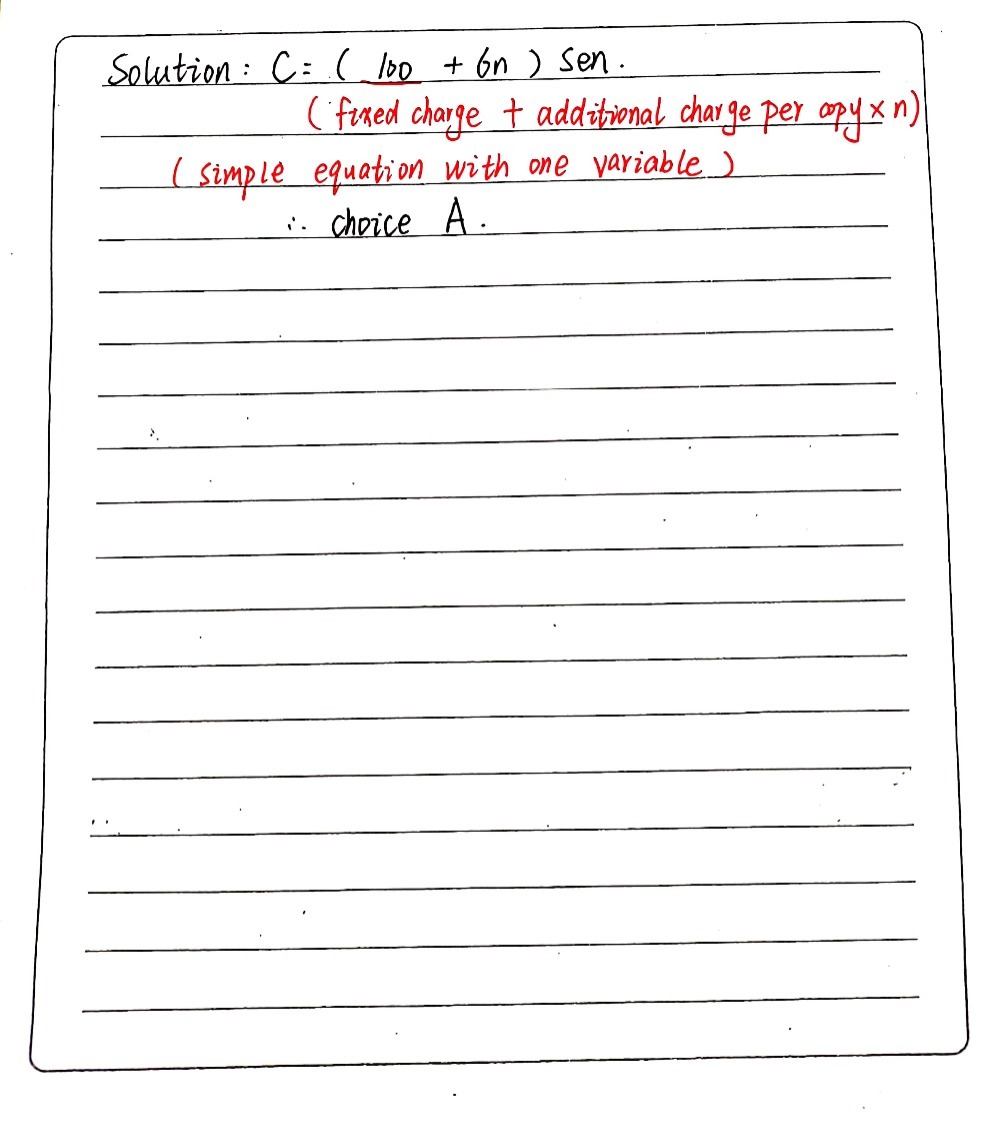 Solution: C = ( 100 + 6n ) sen.
( fixed charge + additional charge per copy × n)
( simple equation with one variable )
∴ choice A.